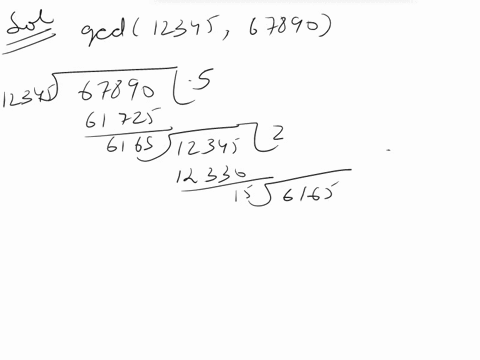 Sol gcd(12345, 67890)
12345 67890 5
61725
6165 12345 2
12330
15 6165